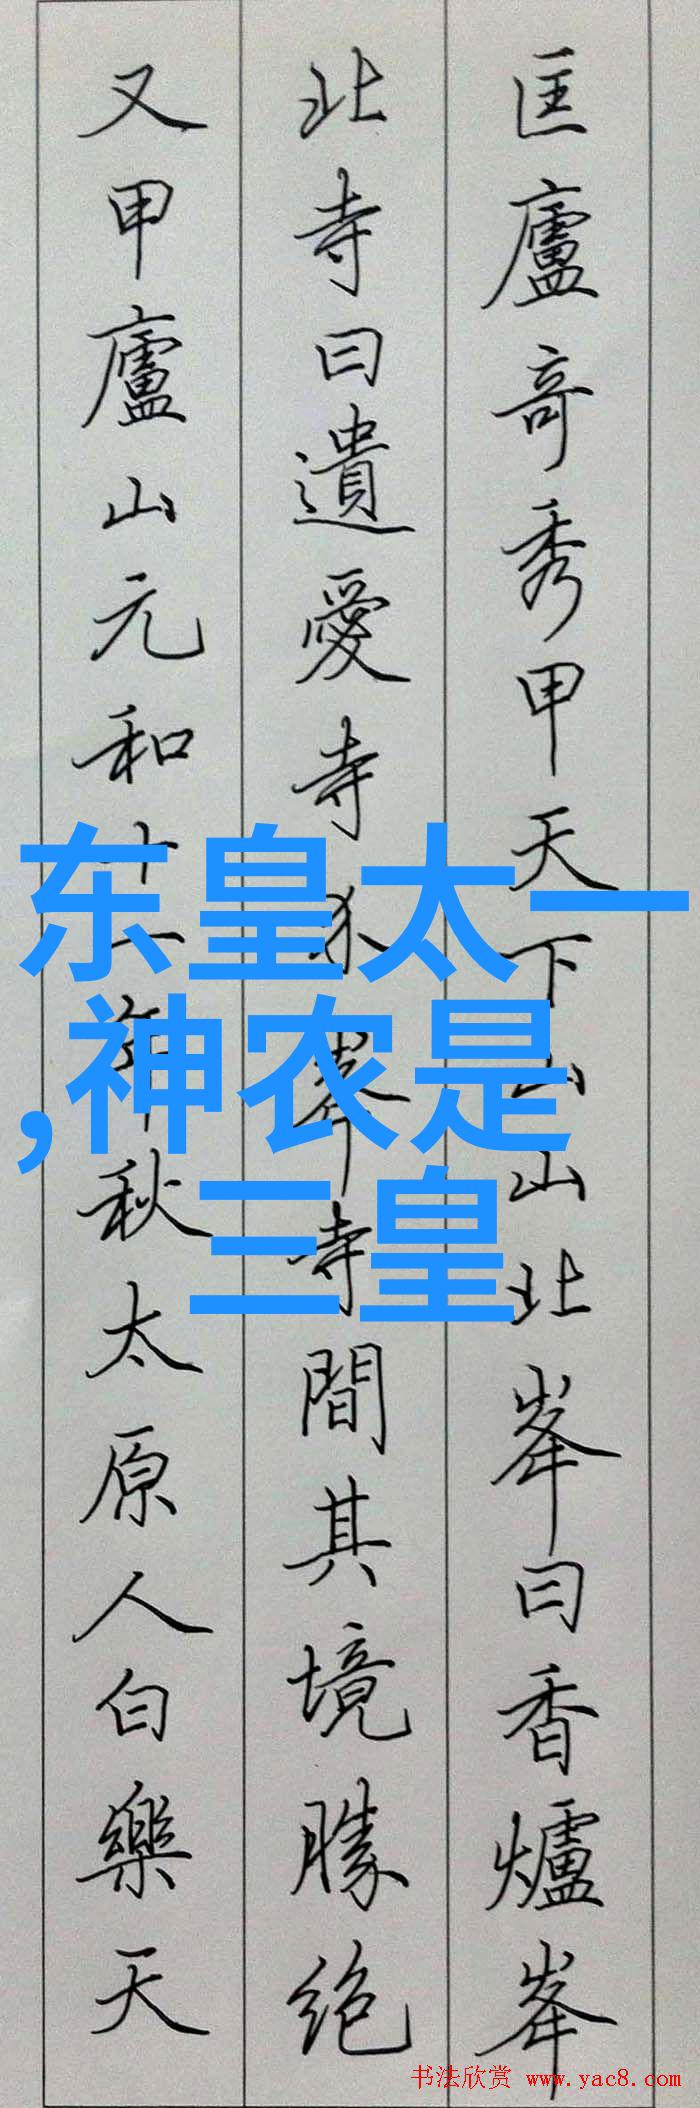 匡廬奇秀甲天下山山北峯曰香爐峯
北寺曰遺愛寺介峯寺間其境勝絶
又甲廬山元和十一年秋太原人白樂天
东皇太一
,神农是
三皇
书法欣赏 www.yac8.com